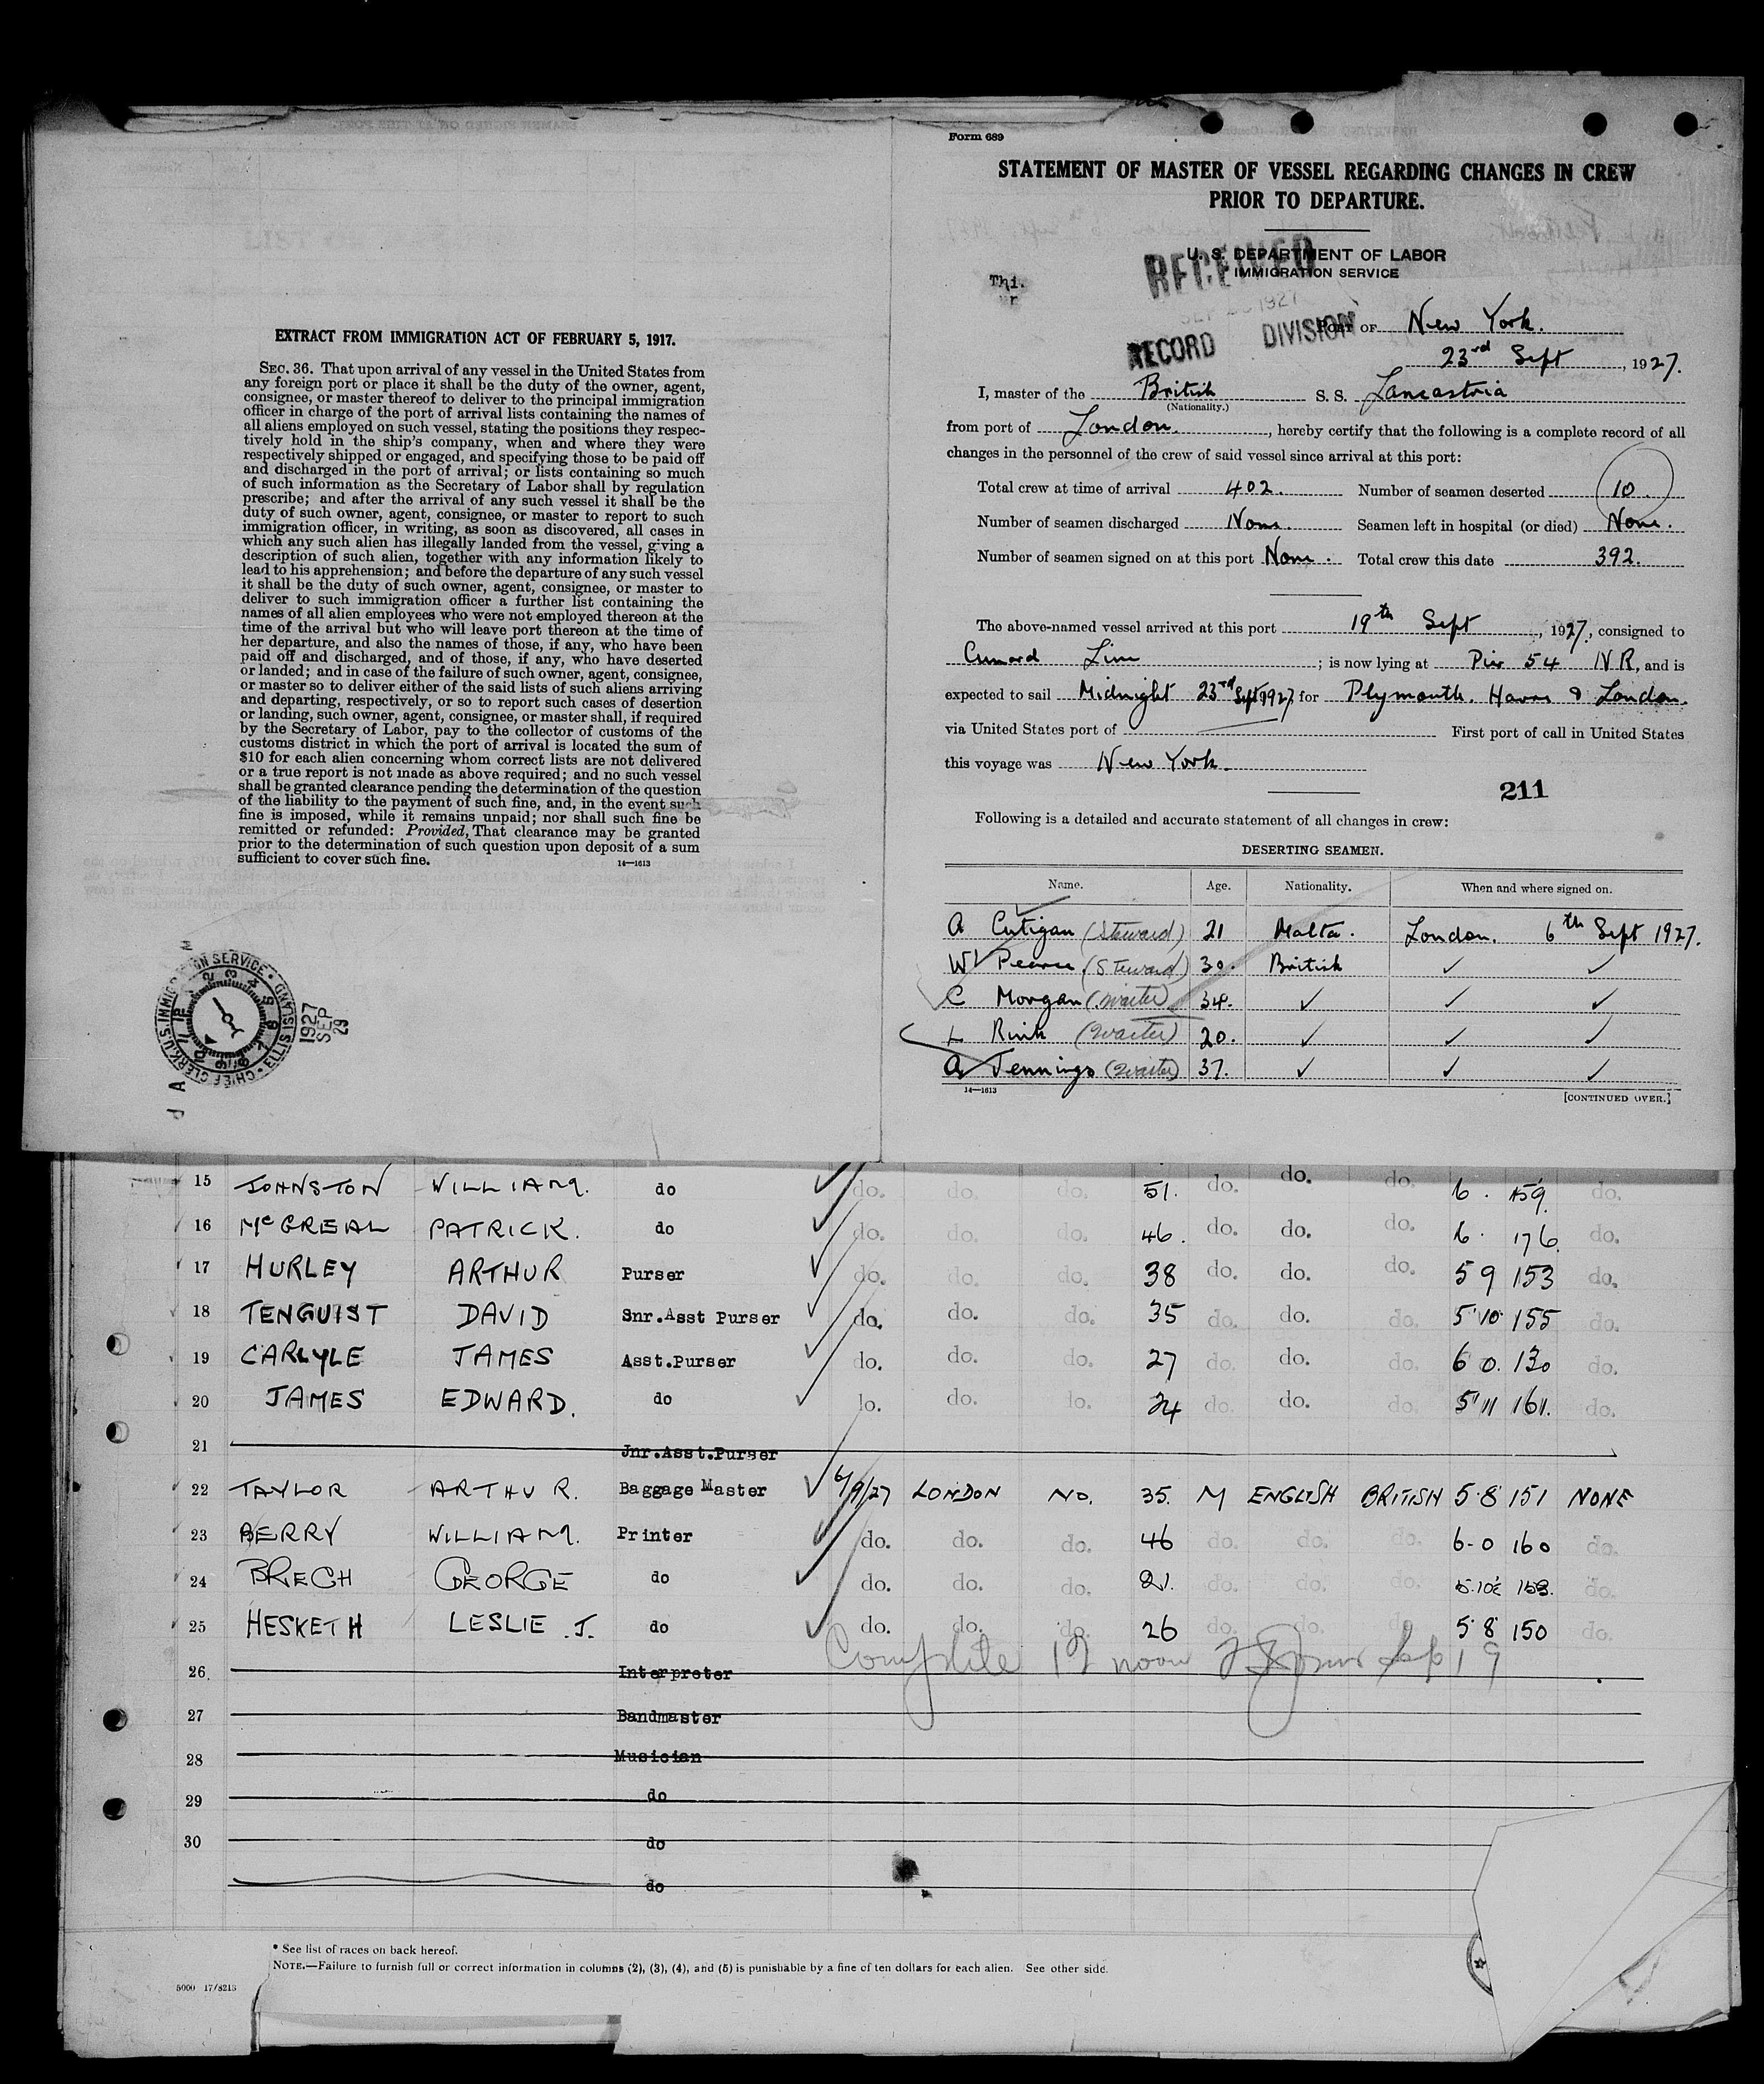 EXTRACT FROM IMMIGRATION ACT OF FEBRUARY 5, 1917.
SEC. 36. That upon arrival of any vessel in the United States from
any foreign port or place it shall be the duty of the owner, agent,
consignee, or master thereof to deliver to the principal immigration
officer in charge of the port of arrival lists containing the names of
all aliens employed on such vessel, stating the positions they respec-
tively hold in the ship's company, when and where they were
respectively shipped or engaged, and specifying those to be paid off
and discharged in the port of arrival; or lists containing so much
of such information as the Secretary of Labor shall by regulation
prescribe; and after the arrival of any such vessel it shall be the
duty of such owner, agent, consignee, or master to report to such
immigration officer, in writing, as soon as discovered, all cases in
which any such alien has illegally landed from the vessel, giving a
description of such alien, together with any information likely to
lead to his apprehension; and before the departure of any such vessel
it shall be the duty of such owner, agent, consignee, or master to
deliver to such immigration officer a further list containing the
names of all alien employees who were not employed thereon at the
time of the arrival but who will leave port thereon at the time of
her departure, and also the names of those, if any, who have been
paid off and discharged, and of those, if any, who have deserted
or landed; and in case of the failure of such owner, agent, consignee,
or master so to deliver either of the said lists of such aliens arriving
and departing, respectively, or so to report such cases of desertion
or landing, such owner, agent, consignee, or master shall, if required
by the Secretary of Labor, pay to the collector of customs of the
customs district in which the port of arrival is located the sum of
$10 for each alien concerning whom correct lists are not delivered
or a true report is not made as above required; and no such vessel
shall be granted clearance pending the determination of the question
of the liability to the payment of such fine, and, in the event such
fine is imposed, while it remains unpaid; nor shall such fine be
remitted or refunded: Provided, That clearance may be granted
prior to the determination of such question upon deposit of a sum
sufficient to cover such fine.
14—1613
CHIEF CLERK U.S. IMMIGRATION SERVICE ELLIS ISLAND
1927 SEP 29
Form 689
STATEMENT OF MASTER OF VESSEL REGARDING CHANGES IN CREW
PRIOR TO DEPARTURE.
U. S. DEPARTMENT OF LABOR
IMMIGRATION SERVICE
RECEIVED
1927
RECORD DIVISION
PORT OF New York.
23rd Sept, 1927.
I, master of the British S. S. Lancastria
(Nationality.)
from port of London., hereby certify that the following is a complete record of all
changes in the personnel of the crew of said vessel since arrival at this port:
Total crew at time of arrival 402. Number of seamen deserted 10.
Number of seamen discharged None. Seamen left in hospital (or died) None.
Number of seamen signed on at this port None. Total crew this date 392.
The above-named vessel arrived at this port 19th Sept, 1927, consigned to
Cunard Line; is now lying at Pier 54 N R, and is
expected to sail Midnight 23rd Sept 1927, for Plymouth. Havre & London.
via United States port of First port of call in United States
this voyage was New York.
211
Following is a detailed and accurate statement of all changes in crew:
DESERTING SEAMEN.
Name. Age. Nationality. When and where signed on.
A Cutigan (Steward) 21 Malta. London. 6th Sept 1927.
W Pearce (Steward) 30. British ✓ ✓
C Morgan (Waiter) 34. ✓ ✓ ✓
L Rink (Waiter) 20. ✓ ✓ ✓
A Jennings (Waiter) 37. ✓ ✓ ✓
14—1613
[CONTINUED OVER.]
15 JOHNSTON WILLIAM. do do. do. do. 51. do. do. do. 6. 159. do.
16 McGREAL PATRICK. do do. do. do. 46. do. do. do. 6. 176. do.
17 HURLEY ARTHUR Purser do. do. do. 38 do. do. do. 5 9 153 do.
18 TENGUIST DAVID Snr.Asst Purser do. do. do. 35 do. do. do. 5'10 155 do.
19 CARLYLE JAMES Asst.Purser do. do. do. 27 do. do. do. 6 0. 130 do.
20 JAMES EDWARD. do do. do. do. 24 do. do. do. 5'11 161. do.
21 Jnr.Asst.Purser
22 TAYLOR ARTHUR. Baggage Master 6/9/27 LONDON NO. 35. M ENGLISH BRITISH 5.8 151 NONE
23 BERRY WILLIAM. Printer do. do. do. 46 do. do. do. 6-0 160 do.
24 BRECH GEORGE do do. do. do. 21. do. do. do. 5.10½ 153. do.
25 HESKETH LESLIE .J. do do. do. do. 26 do. do. do. 5 8 150 do.
Complete 12 noon Sep 19
26. Interpreter
27 Bandmaster
28 Musician
29 do
30 do
do
* See list of races on back hereof.
NOTE.—Failure to furnish full or correct information in columns (2), (3), (4), and (5) is punishable by a fine of ten dollars for each alien. See other side.
5000 17/8213